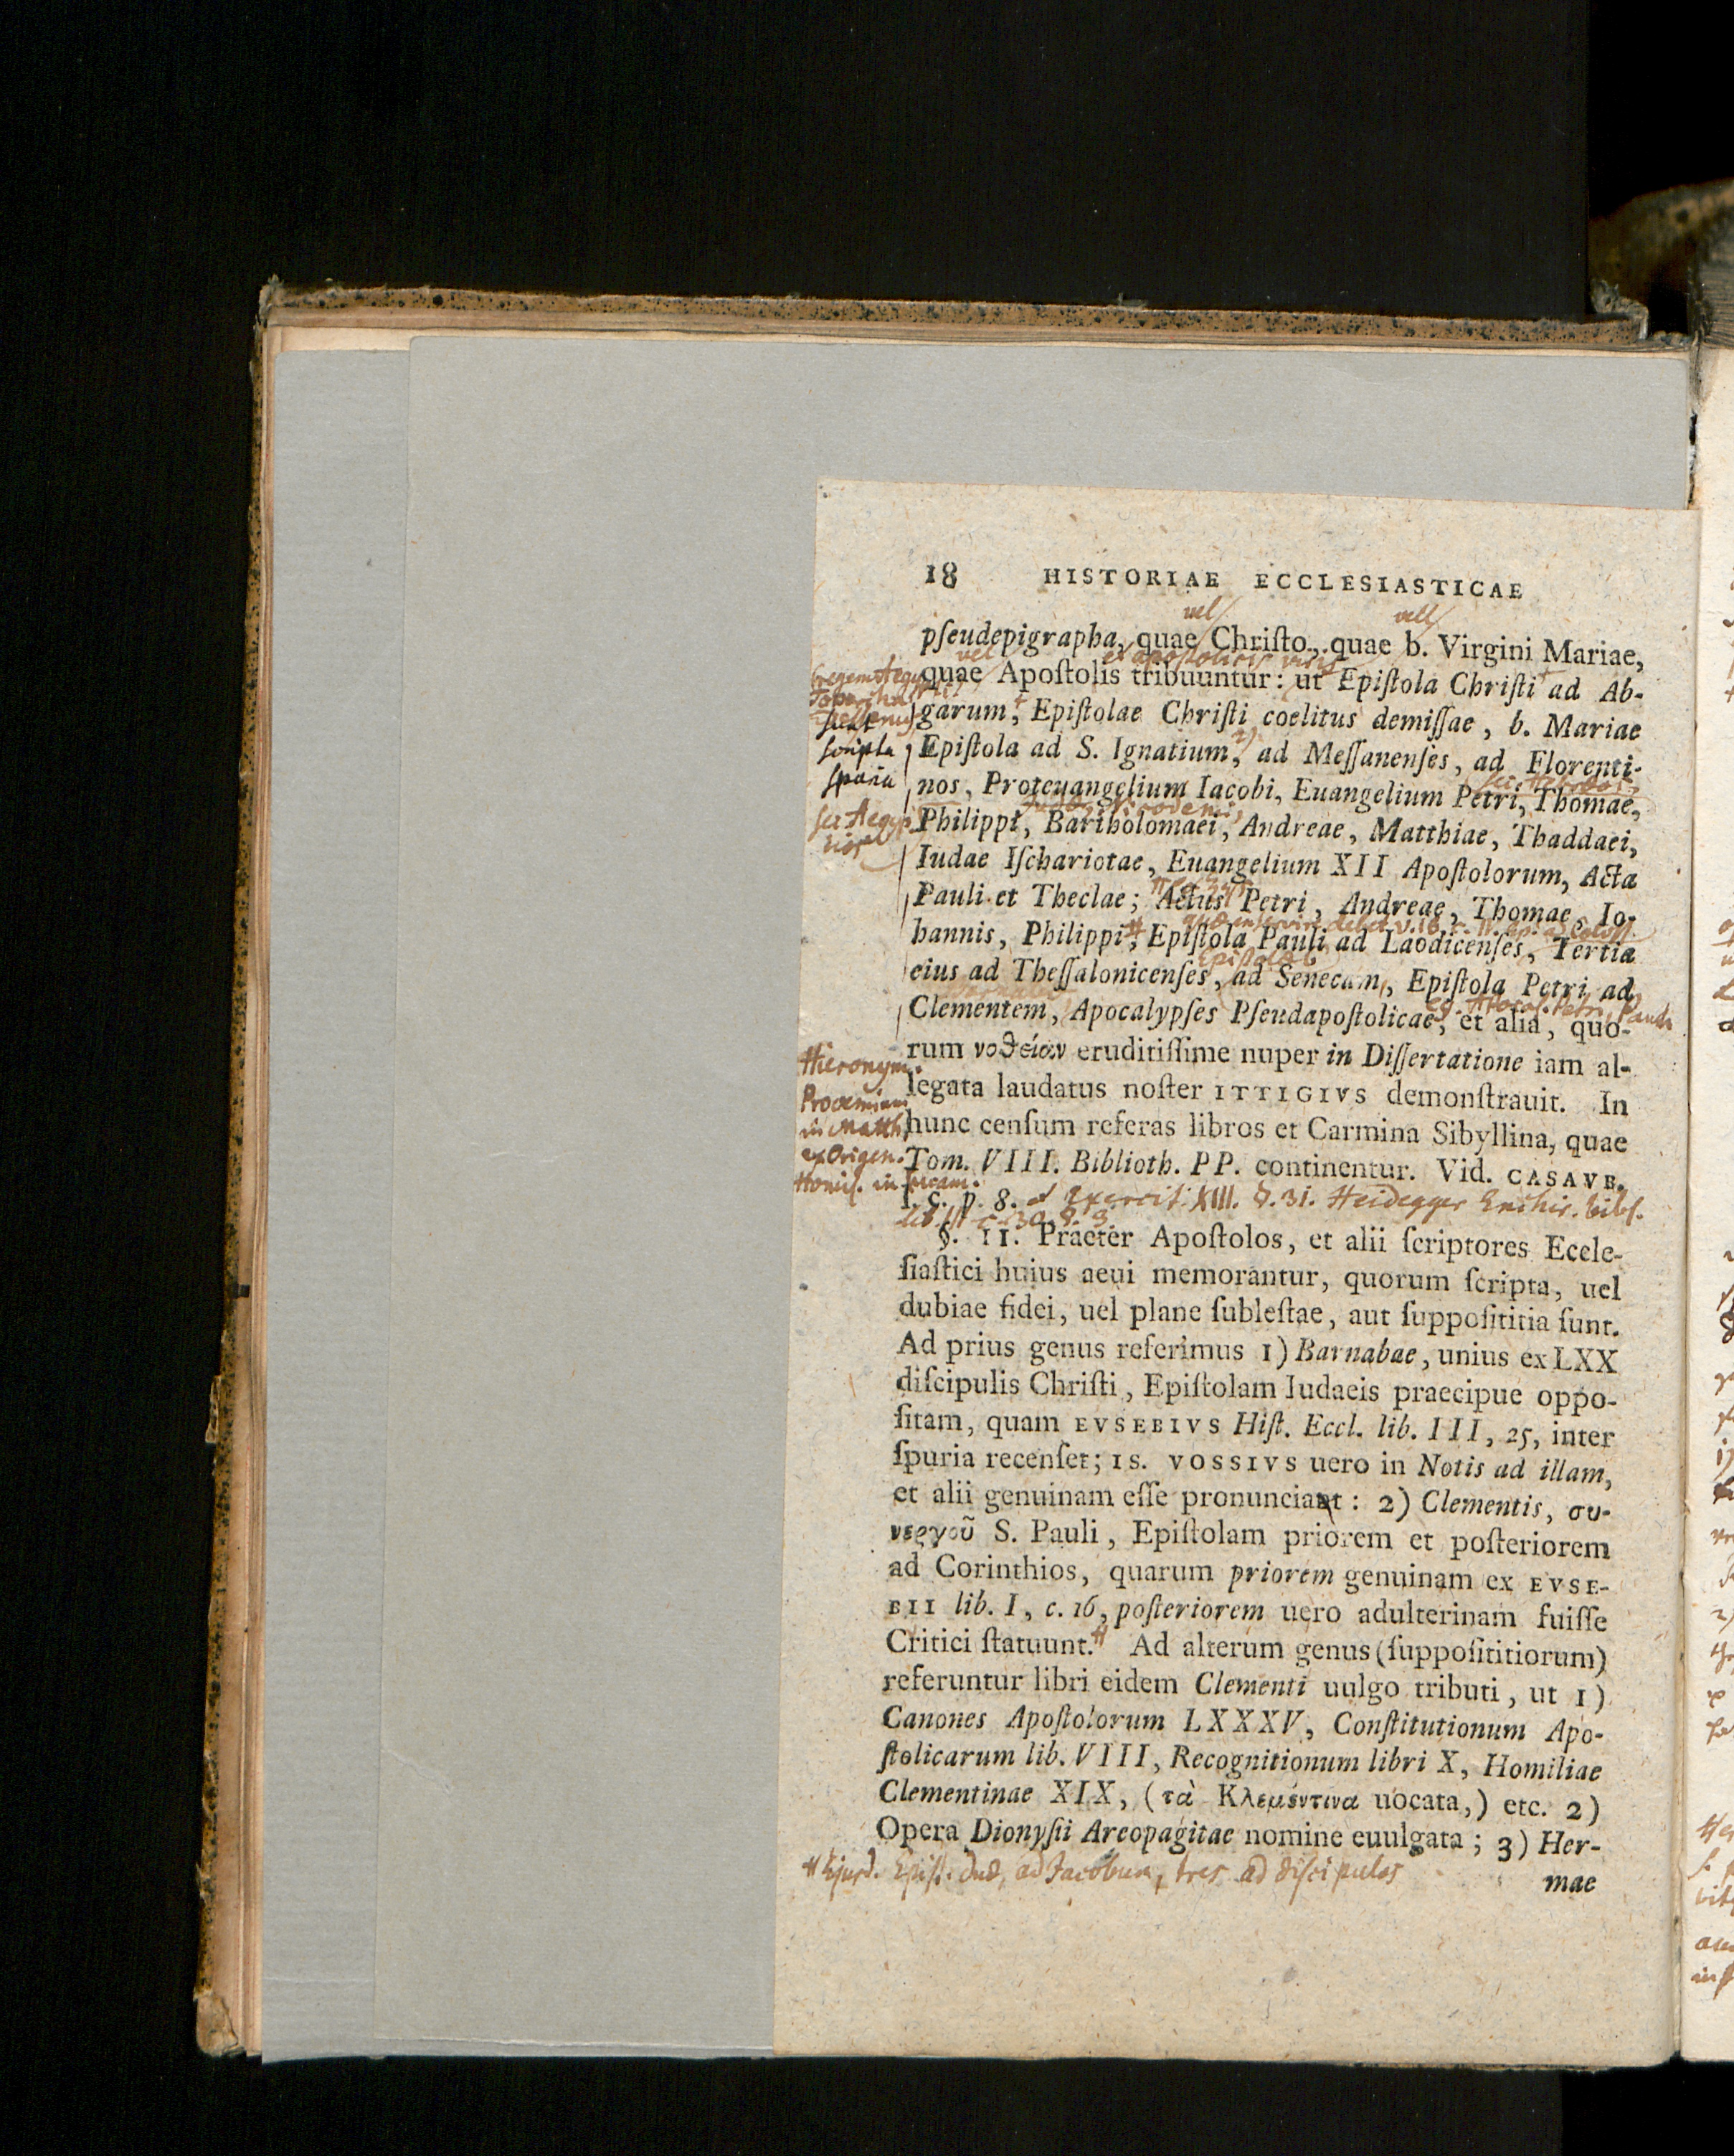 18 HISTORIAE ECCLESIASTICAE
vel vel
pſeudepigrapha, quae Chriſto, quae b. Virgini Mariae,
vel et apostolicis viris
quae Apoſtolis tribuuntur: ut Epiſtola Chriſti ad Ab-
garum, Epiſtolae Chriſti coelitus demiſſae, b. Mariae
Epiſtola ad S. Ignatium, ad Meſſanenſes, ad Florenti-
nos, Proteuangelium Iacobi, Euangelium Petri, Thomae,
Nicodemi,
Philippi, Bartholomaei, Andreae, Matthiae, Thaddaei,
Iudae Iſchariotae, Euangelium XII Apoſtolorum, Acta
Pauli et Theclae; Actus Petri, Andreae, Thomae, Io-
hannis, Philippi, Epiſtola Pauli ad Laodicenſes, Tertia
Epistolae
eius ad Theſſalonicenſes, ad Senecam, Epiſtola Petri ad
Clementem, Apocalypſes Pſeudapoſtolicae, et alia, quo-
rum νοθείαν eruditiſſime nuper in Diſſertatione iam al-
legata laudatus noſter ITTIGIVS demonſtrauit. In
hunc cenſum referas libros et Carmina Sibyllina, quae
Tom. VIII. Biblioth. PP. continentur. Vid. CASAVB.
l. c. p. 8. et Exercit. XIII. §. 31. Heidegger Enchir. bibl.
§. II. Praeter Apoſtolos, et alii ſcriptores Eccle-
ſiaſtici huius aeui memorantur, quorum ſcripta, uel
dubiae fidei, uel plane ſubleſtae, aut ſuppoſititia ſunt.
Ad prius genus referimus 1) Barnabae, unius ex LXX
diſcipulis Chriſti, Epiſtolam Iudaeis praecipue oppo-
ſitam, quam EVSEBIVS Hiſt. Eccl. lib. III, 25, inter
ſpuria recenſet; IS. VOSSIVS uero in Notis ad illam,
et alii genuinam eſſe pronunciant: 2) Clementis, συ-
νεργοῦ S. Pauli, Epiſtolam priorem et poſteriorem
ad Corinthios, quarum priorem genuinam ex EVSE-
BII lib. I, c. 16, poſteriorem uero adulterinam fuiſſe
Critici ſtatuunt. Ad alterum genus (ſuppoſititiorum)
referuntur libri eidem Clementi uulgo tributi, ut 1)
Canones Apoſtolorum LXXXV, Conſtitutionum Apo-
ſtolicarum lib. VIII, Recognitionum libri X, Homiliae
Clementinae XIX, (τὰ Κλεμέντινα uocata,) etc. 2)
Opera Dionyſii Areopagitae nomine euulgata; 3) Her-
mae
scripta
spuria
Hieronym.
Prooemium
in Matth.
ex Origen.
Homil. in Lucam.
Epist. duae ad Jacobum, tres ad discipulos